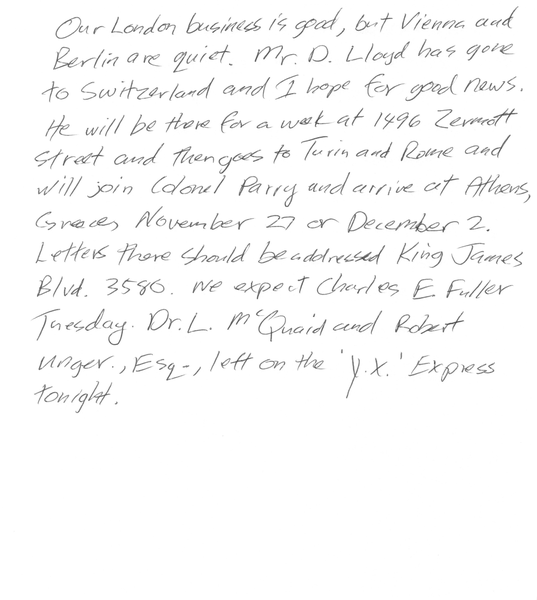 Our London business is good, but Vienna and
Berlin are quiet. Mr. D. Lloyd has gone
to Switzerland and I hope for good news.
He will be there for a week at 1496 Zermott
Street and then goes to Turin and Rome and
will join Colonel Parry and arrive at Athens,
Greece, November 27 or December 2.
Letters there should be addressed King James
Blvd. 3580. We expect Charles E. Fuller
Tuesday. Dr. L. McQuaid and Robert
Unger., Esq-, left on the 'Y.X.' Express
tonight.